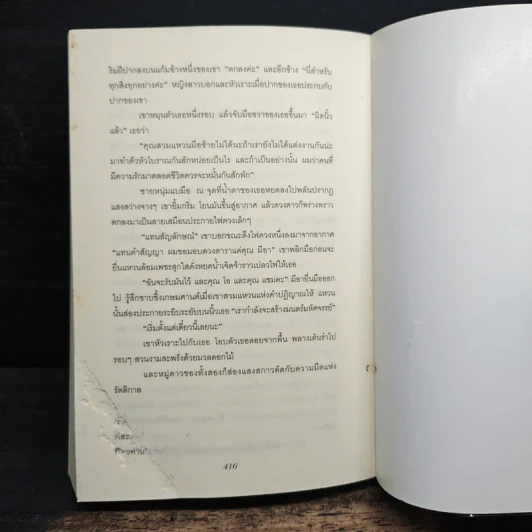 ริมฝีปากลงบนแก้มข้างหนึ่งของเขา “ตกลงค่ะ” และอีกข้าง “นี่สำหรับ
ทุกสิ่งทุกอย่างค่ะ” หญิงสาวบอกและหัวเราะเมื่อปากของเธอประกบกับ
ปากของเขา
เขาหมุนตัวเธอหนึ่งรอบ แล้วจับมือขวาของเธอขึ้นมา “ผิดนิ้ว
แล้ว” เธอว่า
“คุณสวมแหวนมือซ้ายไม่ได้นะถ้าเรายังไม่ได้แต่งงานกันน่ะ
มาทำตัวหัวโบราณกันสักหน่อยเป็นไร และถ้าเป็นอย่างนั้น ผมว่าคนที่
มีความรักมาตลอดชีวิตควรจะหมั้นกันสักพัก”
ชายหนุ่มแบมือ ณ จุดที่น้ำตาของเธอหยดลงไปพลันปรากฏ
แสงสว่างจางๆ เขายิ้มกริ่ม โยนมันขึ้นสู่อากาศ แล้วดวงดาวก็พร่างพราว
ตกลงมาเป็นสายเสมือนประกายไฟดวงเล็กๆ
“แทนสัญลักษณ์” เขาบอกขณะดึงไฟดวงหนึ่งลงมาจากอากาศ
“แทนคำสัญญา ผมขอมอบดวงดาราแด่คุณ มีอา” เขาพลิกมือก่อนจะ
ยื่นแหวนล้อมเพชรสุกใสดั่งหยดน้ำเจิดจ้าราวเปลวไฟให้เธอ
“ฉันจะรับมันไว้ และคุณ โอ และคุณ แซมคะ” มีอายื่นมือออก
ไป รู้สึกซาบซึ้งเกษมศานต์เมื่อเขาสวมแหวนแห่งคำปฏิญาณให้ แหวน
นั้นส่องประกายระยิบระยับบนนิ้วเธอ “เรากำลังจะสร้างมนตร์มหัศจรรย์”
“เริ่มตั้งแต่เดี๋ยวนี้เลยนะ”
เขาหัวเราะไปกับเธอ โอบตัวเธอลอยจากพื้น พลางเต้นรำไป
รอบๆ สวนงามสะพรั่งด้วยมวลดอกไม้
และหมู่ดาวของทั้งสองก็ส่องแสงสกาวตัดกับความมืดแห่ง
รัตติกาล
416